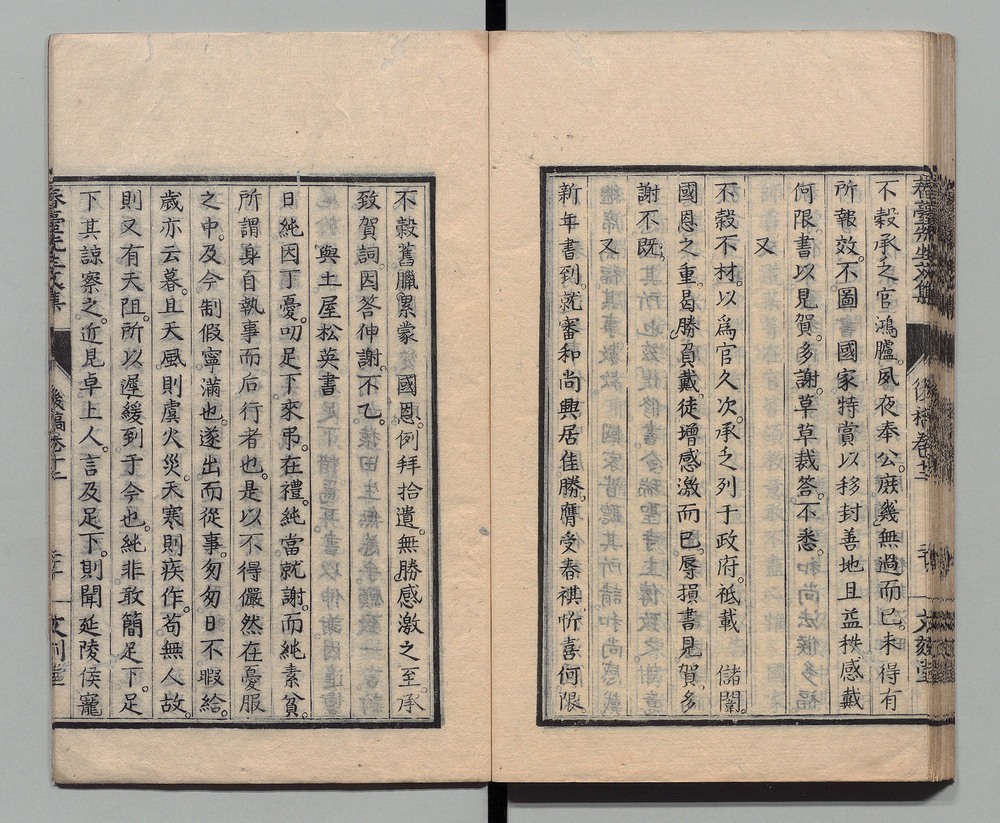 春臺先生文集 後稿卷十二 文刻堂
不穀承之官鴻臚。夙夜奉公。庶幾無過而已。未得有
所報效。不圖國家特賞以移封善地且益秩感戴
何限。書以見賀。多謝。草草裁答。不悉。
又
不穀不材。以爲官久次。承乏列于政府。祗載 儲闈。
國恩之重。曷勝負戴。徒增感激而已。辱損書見賀。多
謝不既。
又
新年書到。就審和尚興居佳勝。膺受春祺。忻喜何限
不穀舊臘累蒙 國恩。例拜拾遺。無勝感激之至。承
致賀詞。因答伸謝。不乙。
與土屋松英書
日純因丁憂。叨足下來弔。在禮。純當就謝。而純素貧。
所謂身自執事而后行者也。是以不得儼然在憂服
之中。及今制假寧滿也。遂出而從事。匆匆日不暇給。
歲亦云暮。且天風則虞火災。天寒則疾作。苟無人故。
則又有天阻。所以遲緩到于今也。純非敢簡足下。足
下其諒察之。近見卓上人。言及足下。則聞延陵侯寵
春臺先生文集 後稿卷十二 文刻堂